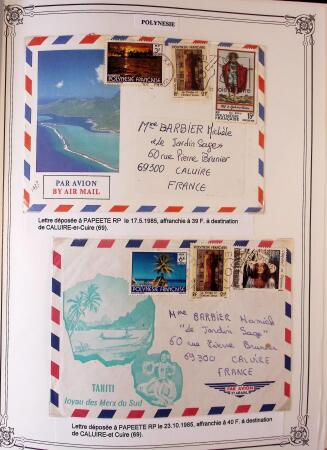 POLYNESIE
POLYNÉSIE FRANÇAISE
Mme BARBIER Michèle
"Le Jardin Sage"
60 rue Pierre Brunier
69300 CALUIRE
FRANCE
PAR AVION
BY AIR MAIL
Lettre déposée à PAPEETE RP le 17.5.1985, affranchie à 39 F. à destination
de CALUIRE-et-Cuire (69).
POLYNÉSIE FRANÇAISE
Mme BARBIER
"Le Jardin Sage"
60 rue Pierre Brunier
69300 CALUIRE
FRANCE
PAR AVION
TAHITI
Joyau des Mers du Sud
Lettre déposée à PAPEETE RP le 23.10.1985, affranchie à 40 F. à destination
de CALUIRE-et Cuire (69).